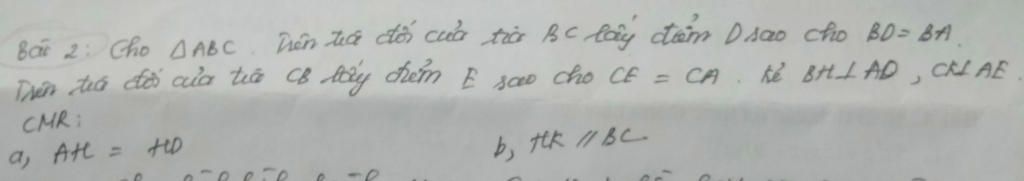 Bài 2: Cho △ABC. Trên tia đối của tia BC lấy điểm D sao cho BD = BA.
Trên tia đối của tia CB lấy điểm E sao cho CE = CA. Kẻ BH⊥AD, CK⊥AE.
CMR:
a, AH = HD b, HK // BC